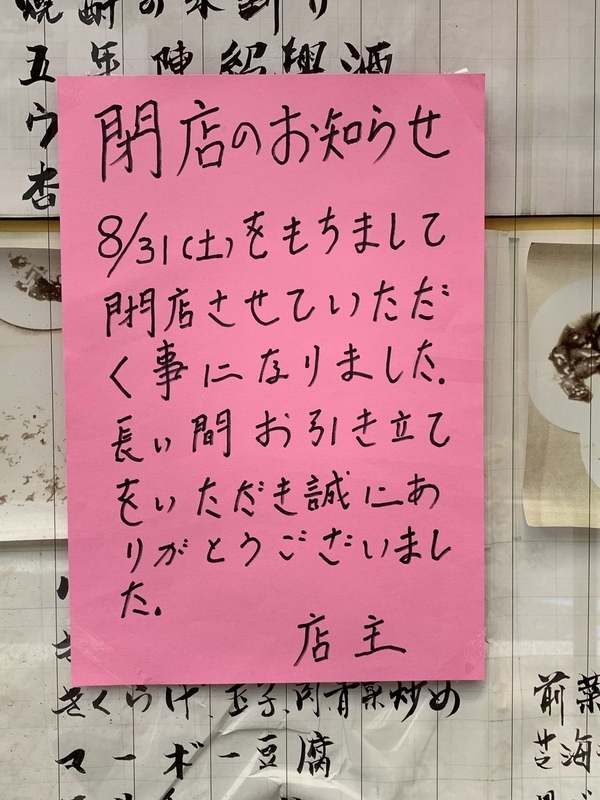 焼酎の水割り
五年陳紹興酒
ウ
杏
閉店のお知らせ
8/31(土)をもちまして
閉店させていただ
く事になりました.
長い間お引き立て
をいただき誠にあ
りがとうございまし
た.
店主
きくらげ、玉子、肉青菜炒め
マーボー豆腐
前菜
海